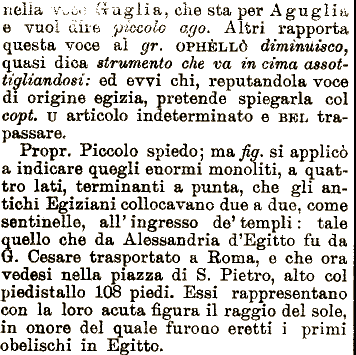 nella voce Guglia, che sta per Aguglia
e vuol dire piccolo ago. Altri rapporta
questa voce al gr. OPHÈLLÔ diminuisco,
quasi dica strumento che va in cima assot-
tigliandosi: ed evvi chi, reputandola voce
di origine egizia, pretende spiegarla col
copt. U articolo indeterminato e BEL tra-
passare.
Propr. Piccolo spiedo; ma fig. si applicò
a indicare quegli enormi monoliti, a quat-
tro lati, terminanti a punta, che gli an-
tichi Egiziani collocavano due a due, come
sentinelle, all'ingresso de' templi: tale
quello che da Alessandria d'Egitto fu da
G. Cesare trasportato a Roma, e che ora
vedesi nella piazza di S. Pietro, alto col
piedistallo 108 piedi. Essi rappresentano
con la loro acuta figura il raggio del sole,
in onore del quale furono eretti i primi
obelischi in Egitto.